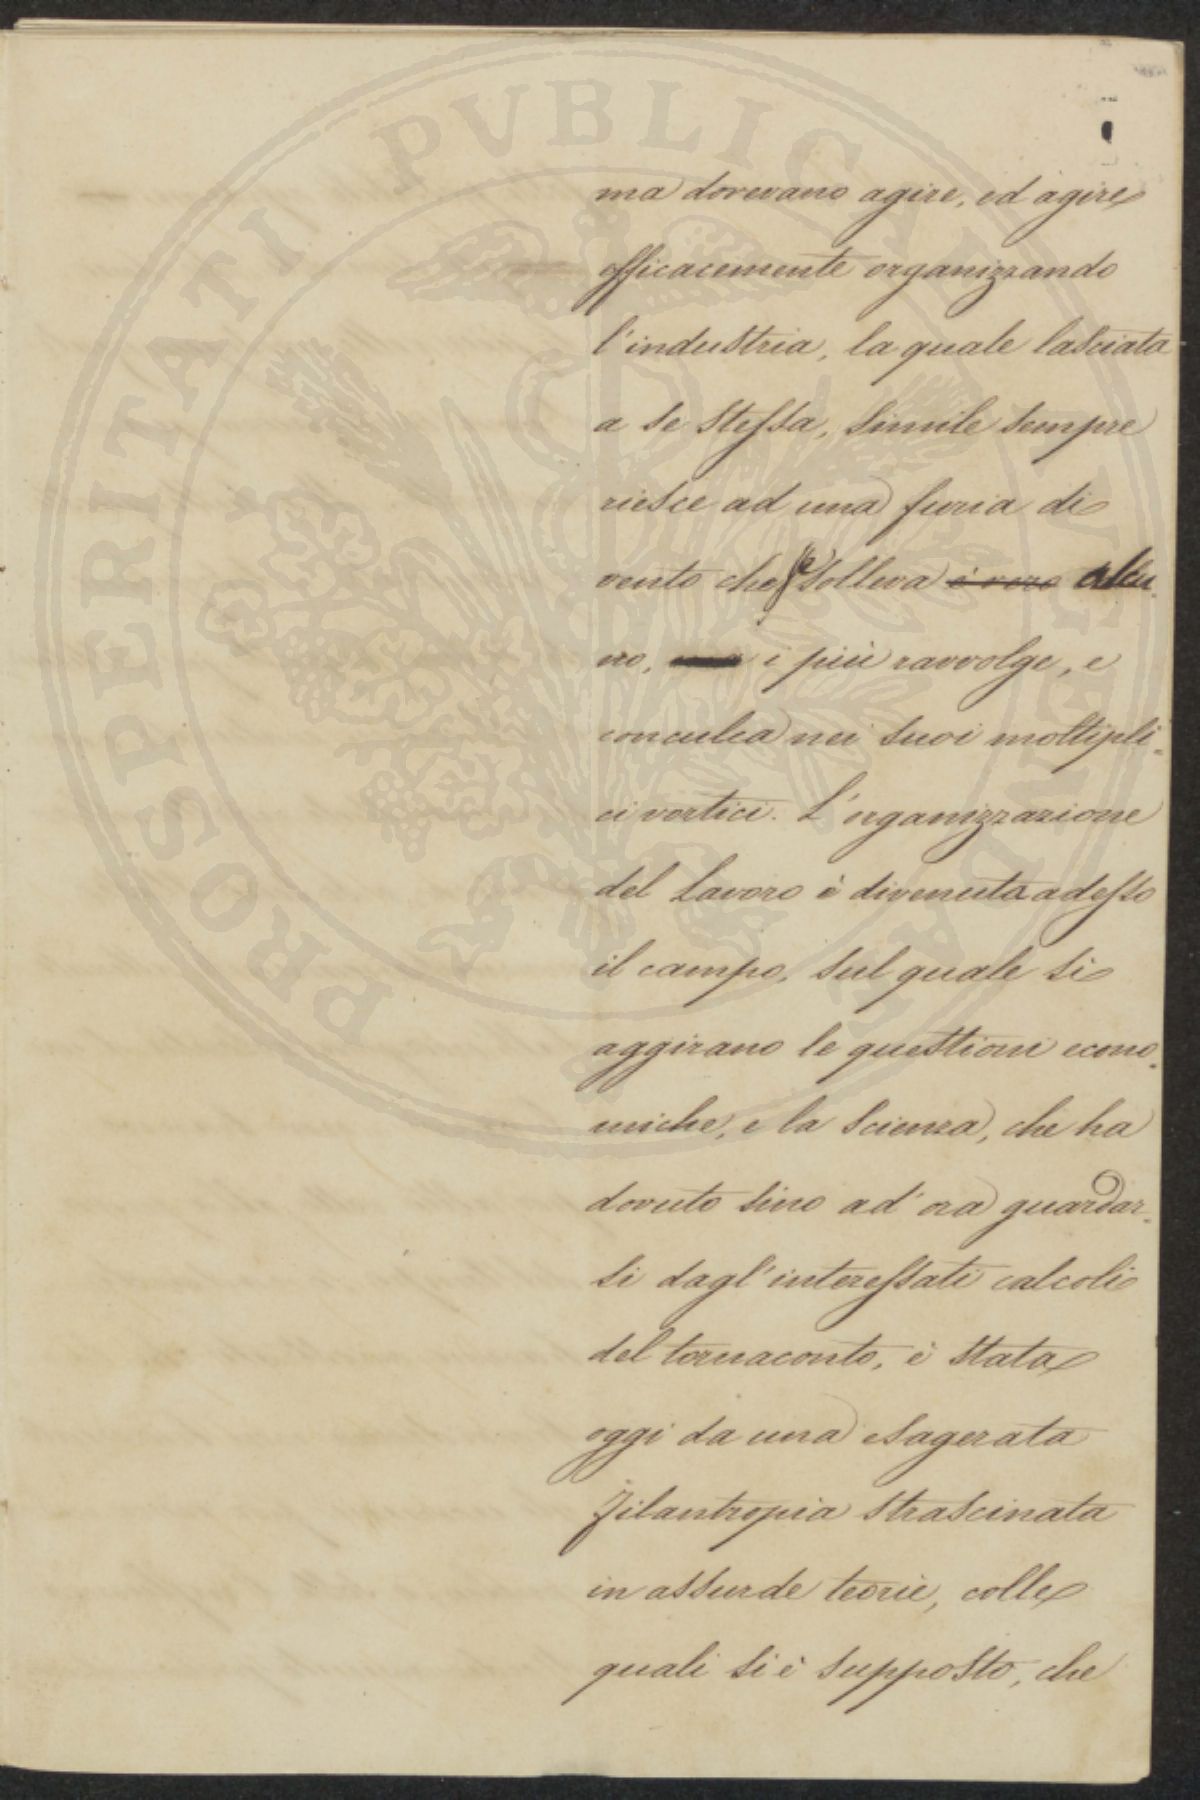 PROSPERITATI PUBLICAE AUGENDAE
ma dovevano agire, ed agire
efficacemente organizzando
l'industria, la quale lasciata
a se stessa, simile sempre
riesce ad una furia di
vento che se solleva è vero alcu-
no, ma i più ravvolge, e
conculca nei suoi moltipli-
ci vortici. L'organizzazione
del Lavoro è divenuta adesso
il campo, sul quale si
aggirano le questioni econo-
miche, e la Scienza, che ha
dovuto sino ad'ora guardar-
si dagl'interessati calcoli
del tornaconto, è stata
oggi da una esagerata
Filantropia strascinata
in assurde teorie, colle
quali si è supposto, che